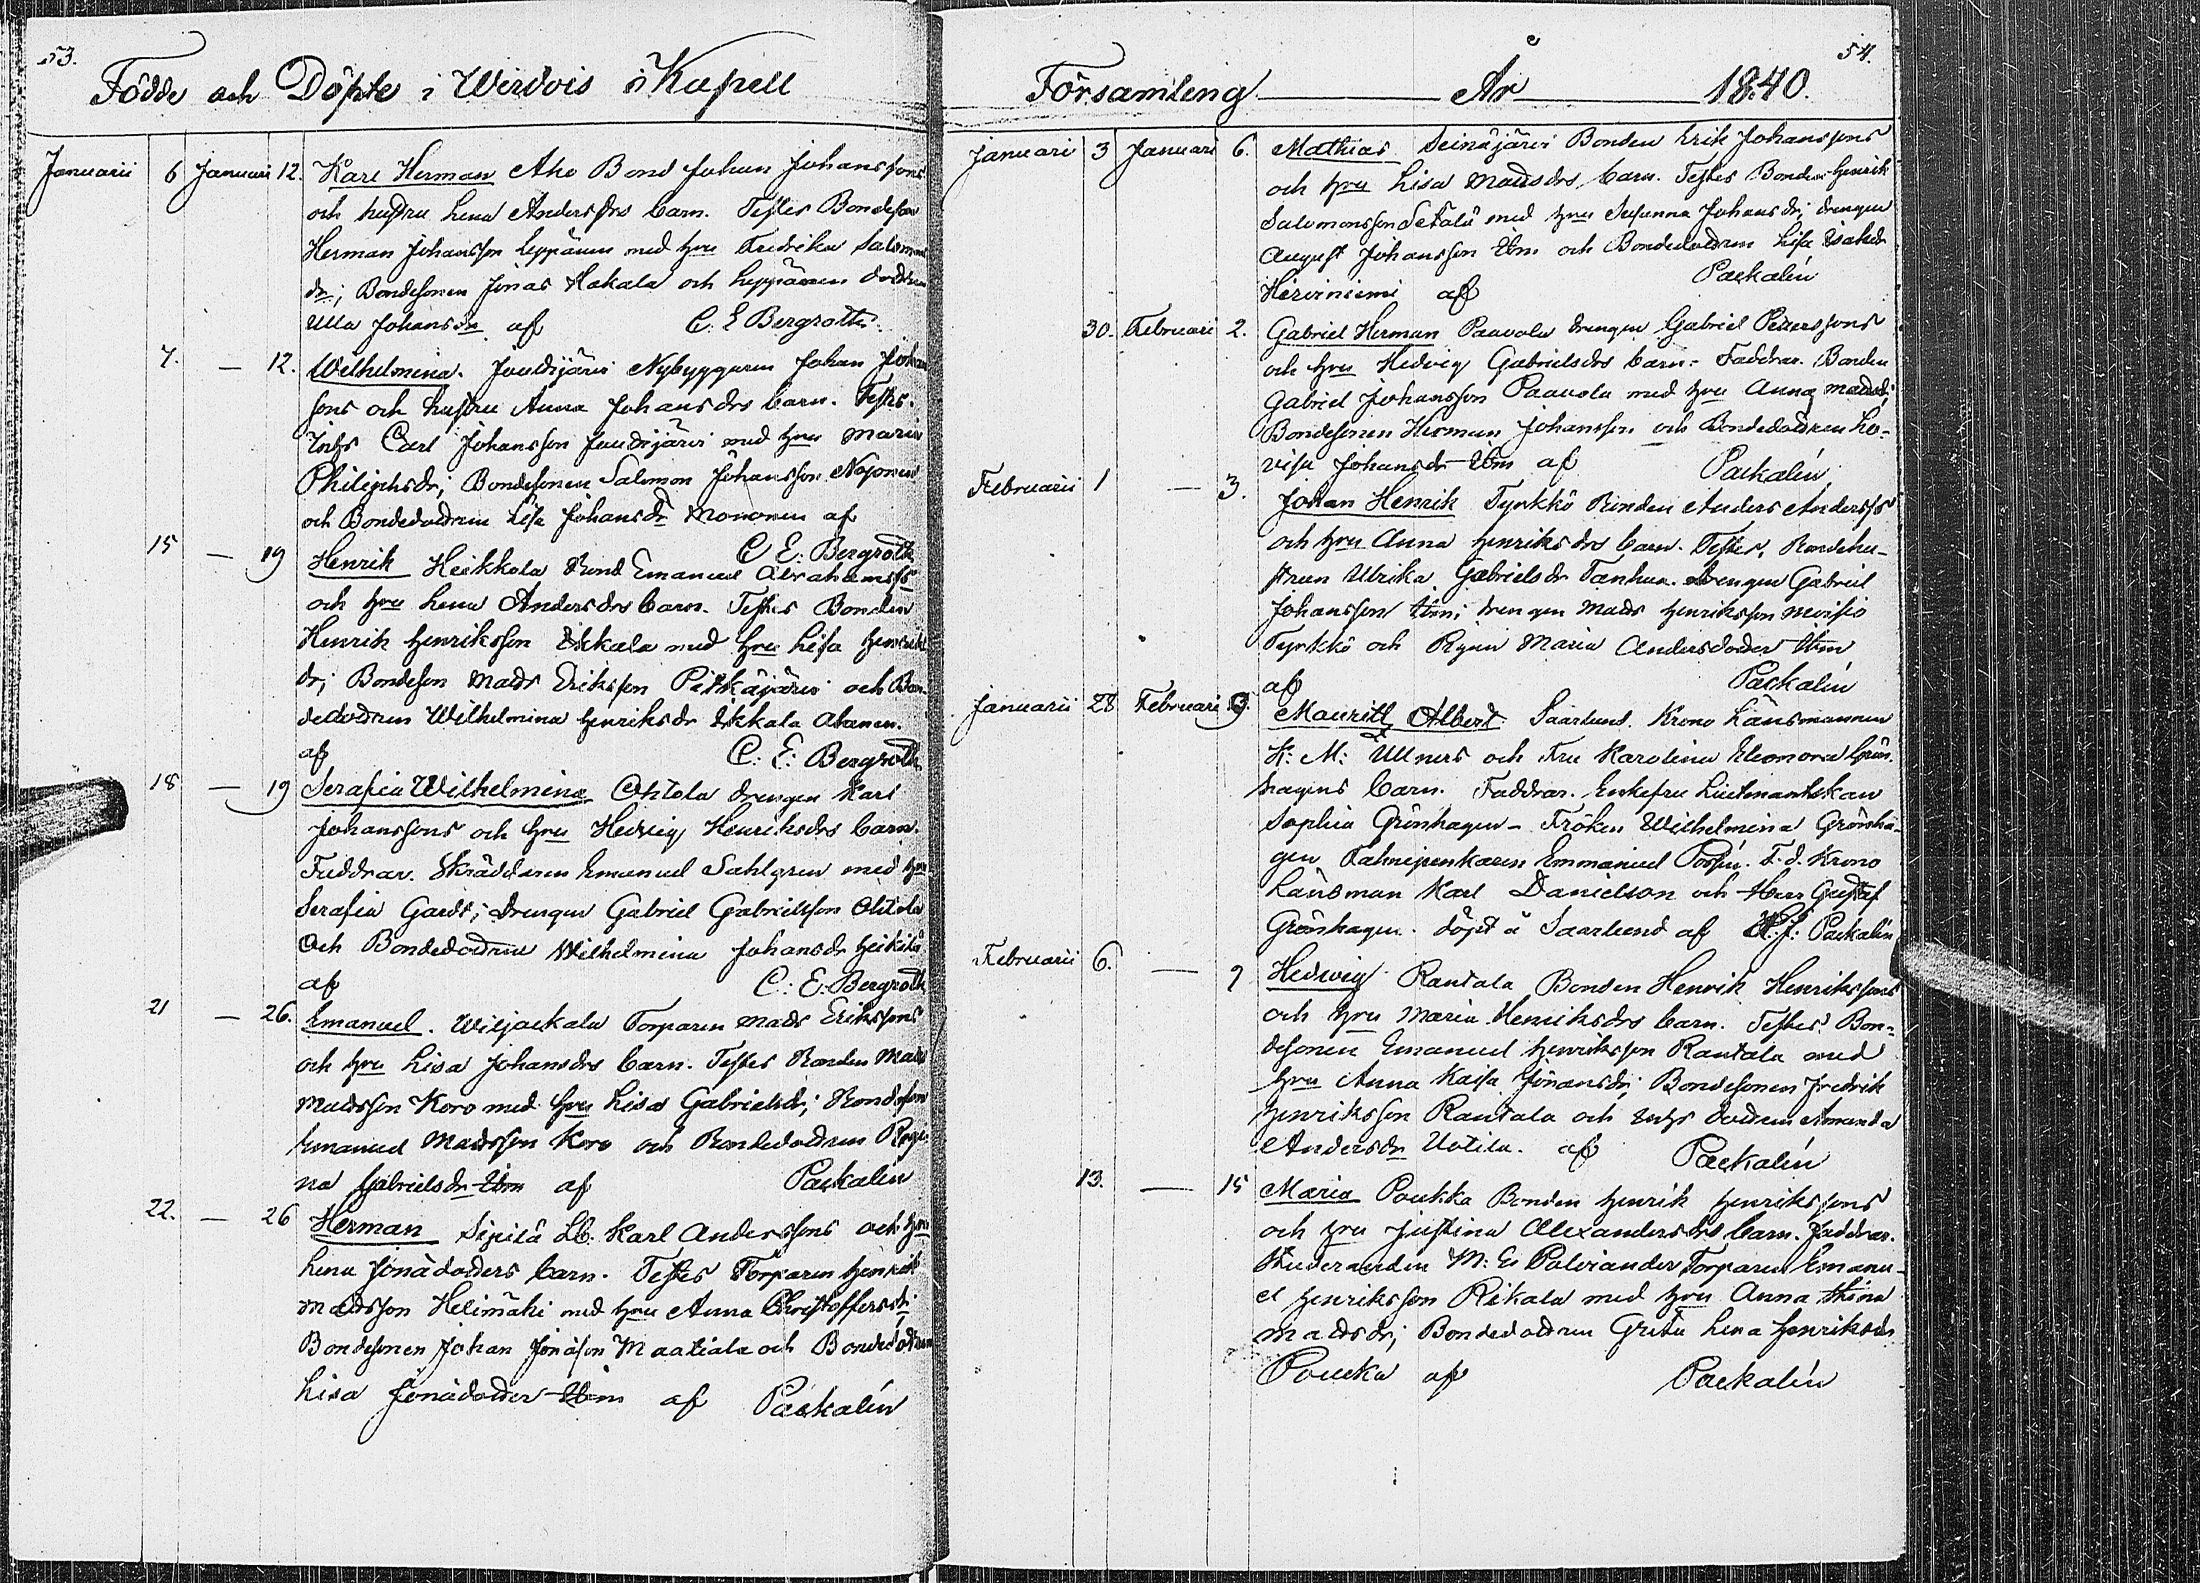 53.
Födde och Döpte i Wirdois Kapell
Januarii 6 Januari 12. Karl Herman Aho Bond Johan Johanssons
och hustru Lena Andersdrs barn. Testes Bondeson
Herman Johansson Leppänen med hru Fredrika Salomons
dr; Bondesonen Jonas Hakala och Leppänen dottren
Ulla Johansdr af C. E Bergroth.
7. — 12. Wilhelmina. Jouttijärvi Nybyggaren Johan Johan
sons och hustru Anna Johansdrs barn. Testes.
Inhs Carl Johansson Jouttijärvi med hru Maria
Philiphsdr; Bondesonen Salomon Johansson Nojonen
och Bondedottren Lisa Johansdr Mononen af
C E: Bergroth
15 — 19 Henrik Heikkola Bond Emanuel Abrahamss
och hru Lena Andersdrs barn. Testes Bonden
Henrik Henriksson Ikkala med hru Lisa Henriks
dr; Bondeson Mads Eriksson Pitkäjärvi och Bon
dedottren Wilhelmina Henriksdr Ikkala Ahonen.
af C: E: Bergroth
18 — 19 Serafia Wilhelmina Ohtola drengen Karl
Johanssons och hru Hedvig Henriksdrs barn.
Faddrar. Skräddaren Emanuel Sahlgren med hru
Serafia Gardt; Drengen Gabriel Gabrielsson Ohtola
Och Bondedottren Wilhelmina Johansdr Heikilä
af C: E: Bergroth
21 — 26. Emanuel. Wiljackala Torparen Mads Erikssons
och hru Lisa Johansdrs barn. Testes Bonden Mads
Madsson Koro med hru Lisa Gabrielsdr; Bondeson
Emanuel Madsson Koro och Bondedottren Regi
na Gabrielsdr Ibm af Packalén
22. — 26 Herman Sipilä Lb. Karl Anderssons och hru
Lena Jonädotters barn. Testes Torparen Henrik
Madsson Helimäki med hru Anna Christoffersdr;
Bondesonen Johan Jonäson Maatiala och Bondedottren
Lisa Jonädotter Ibm af Packalén
54.
Församling År 1840.
Januari 3 Januari 6. Mathias Seinäjärvi Bonden Erik Johanssons
och hru Lisa Madsdrs barn. Testes Bonden Henrik
Salomonsson Setälä med hru Susanna Johansdr; drengen
August Johansson Ibm och Bondedottren Lisa Isaksdr
Hirviniemi af Packalén
30. Februari 2. Gabriel Herman Paavola drengen Gabriel Petterssons
och hru Hedvig Gabrielsdrs barn. Faddrar. Bonden
Gabriel Johansson Paavola med hru Anna Madsdr;
Bondesonen Herman Johansson och Bondedottren Lo-
visa Johansdr Ibm af Packalén
Februarii 1 — 3. Johan Henrik Tyrkkö Bonden Anders Anderss
och hru Anna Henriksdrs barn. Testes, Bondehu-
strun Ulrika Gabrielsdr Tanhua. Drengen Gabriel
Johansson Ibm; drengen Mads Henriksson
Tyrkkö och Pigan Maria Andersdotter Ibm
af Packalén
Januarii 28 Februari 9. Mauritz Albert Saarlund. Krono Länsmannen
K: M: Ullners och Fru Karolina Eleonora Grön
hagens barn. Faddrar. Enkefru Lieutenantskan
Sophia Grönhagen – Fröken Wilhelmina Grönha-
gen Fahnjunkaren Emmanuel T. d. Krono
Länsman Karl Danielson och Herr Gustaf
Grönhagen. döpt å Saarlund af Packalén
Februarii 6. — 9 Hedvig Rantala Bonden Henrik Henrikssons
och hru Maria Henriksdrs barn. Testes Bon-
desonen Emanuel Henriksson Rantala med
hru Anna Kaisa Jonansdr; Bondesonen Fredrik
Henriksson Rantala och Inhs dottren Amanda
Andersdr Uotila. af Packalén
13. — 15 Maria Poukka Bonden Henrik Henrikssons
och hru Justina Alexandersdrs barn. Faddrar.
Studeranden M: E: Polviander Torparen Emanu-
el Henriksson Rikala med hru Anna Stina
Madsdr; Bondedottren Greta Lena Henriksdr
Poucka af Packalén